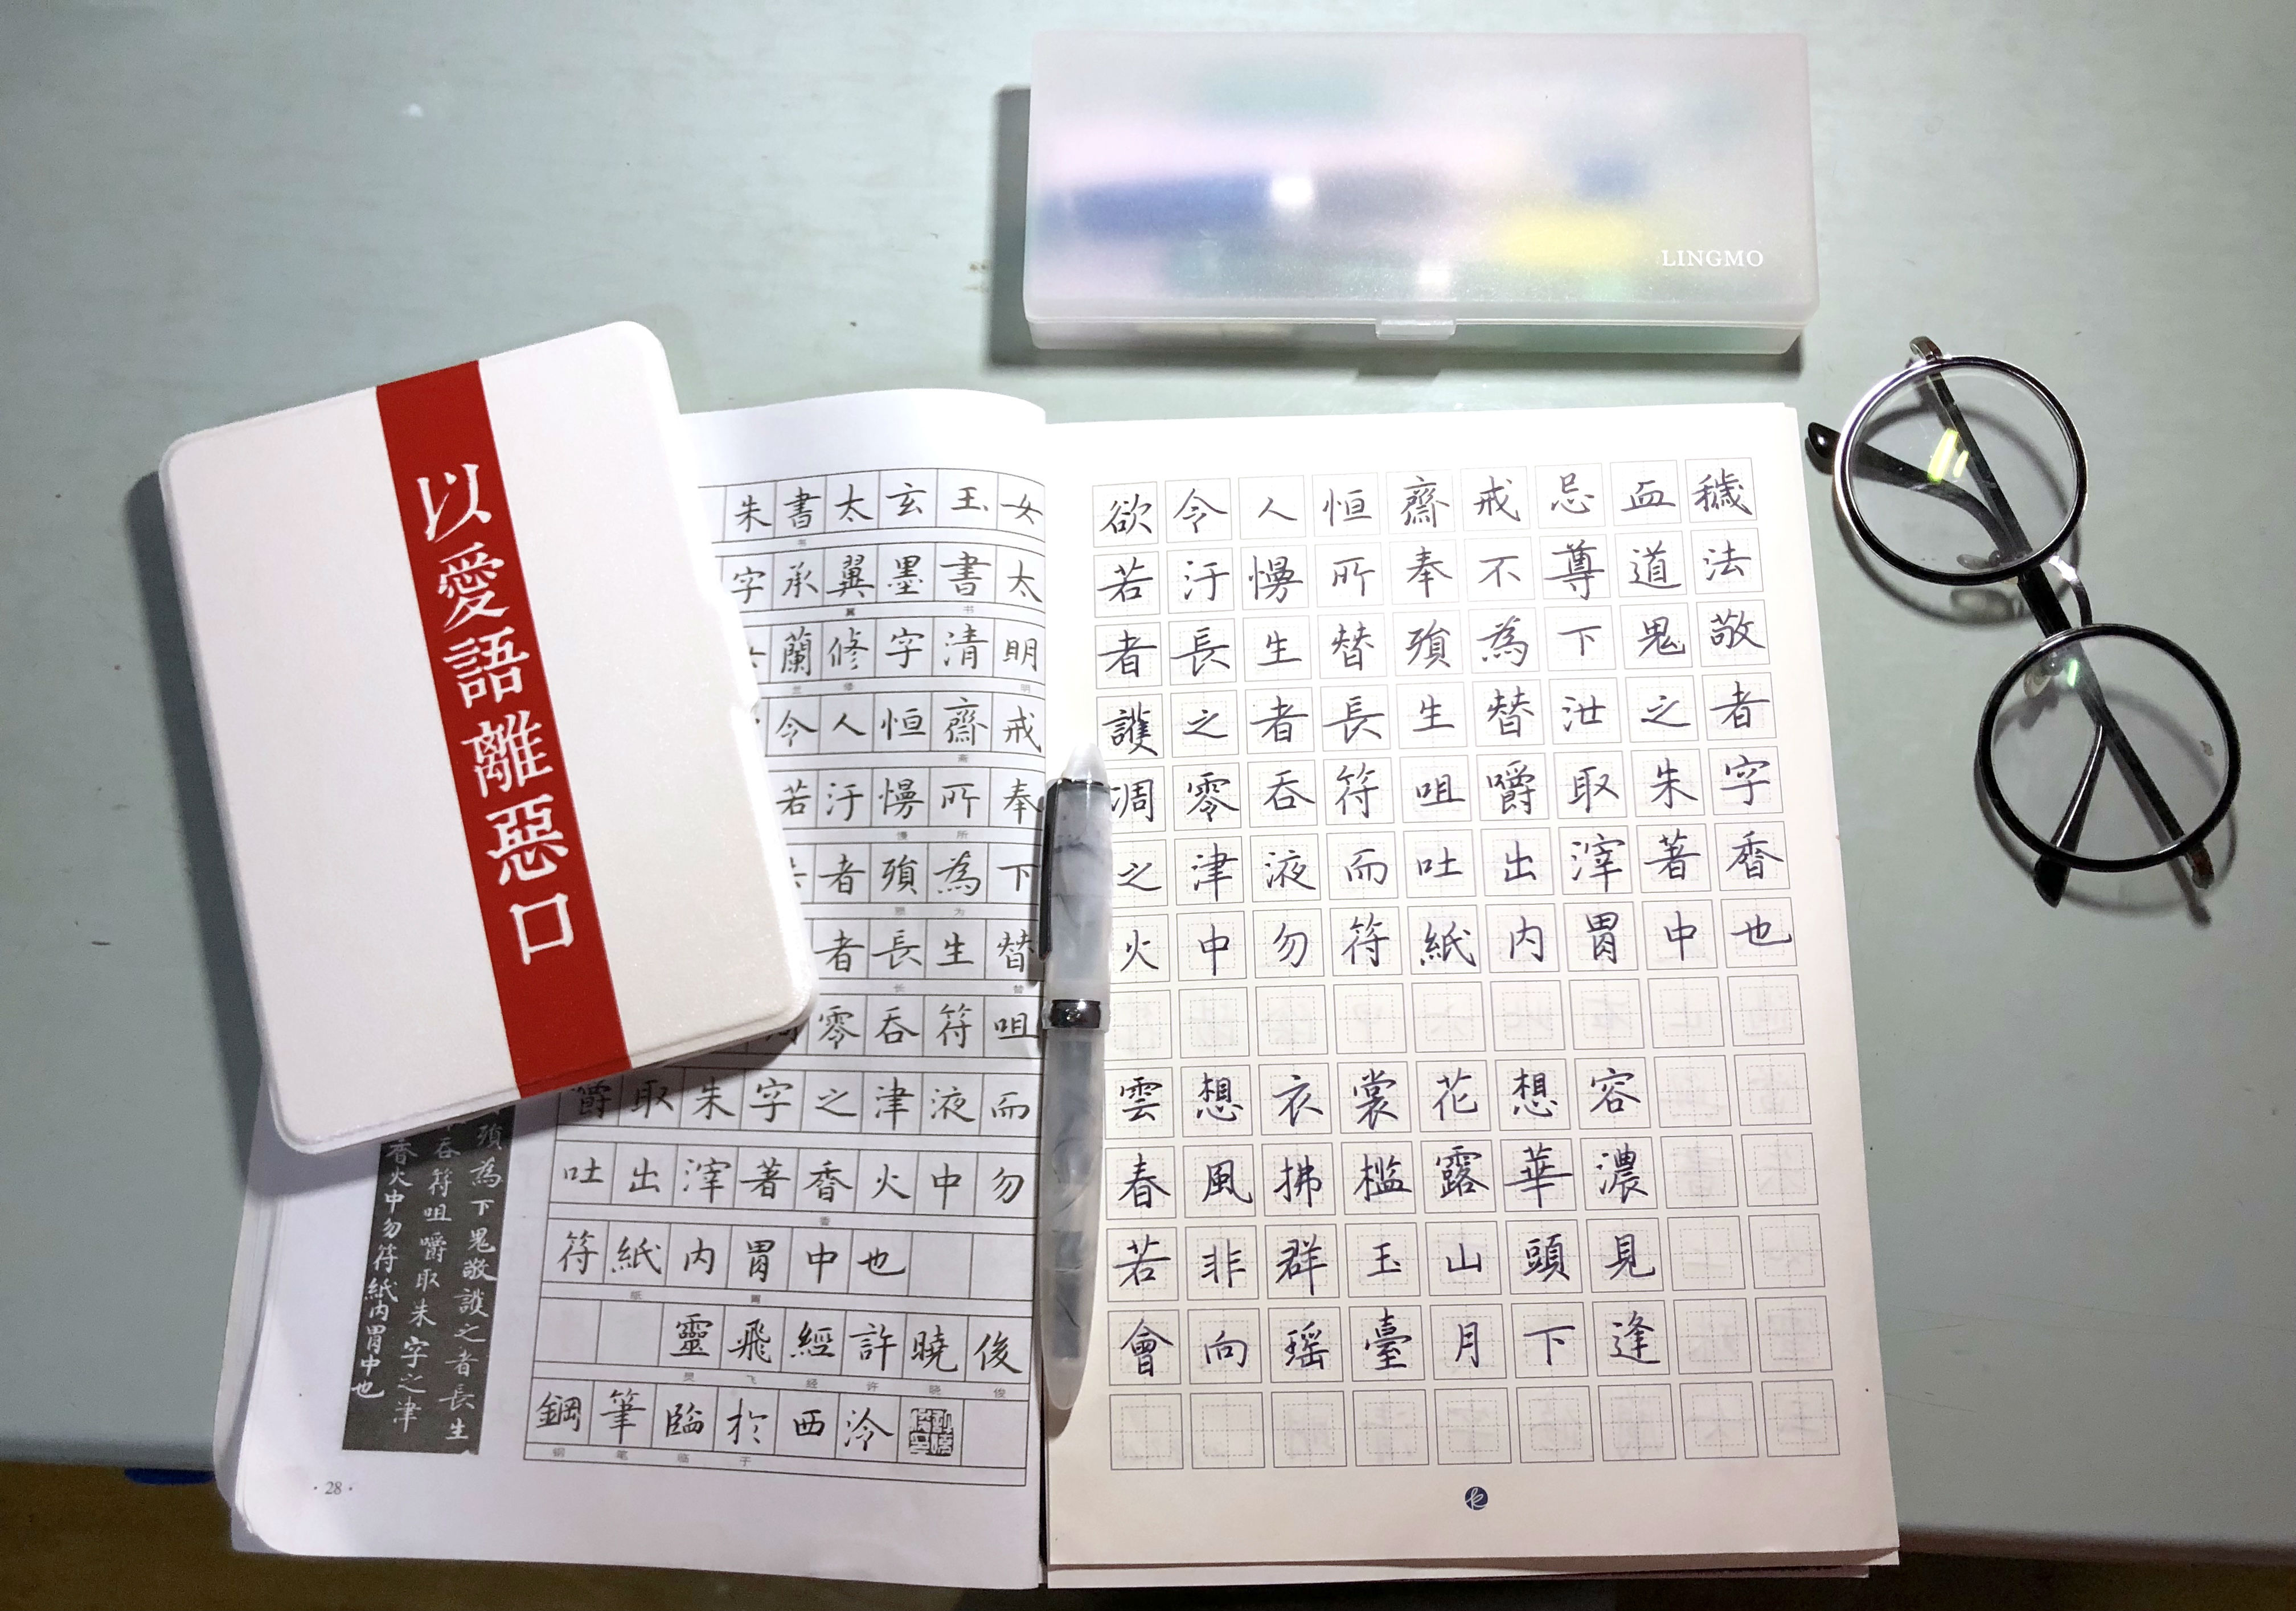 LINGMO
以愛語離惡口
朱書太玄玉女
字承翼墨書太
蘭修字清明
令人恒齋戒
若汙慢所奉
者殞為下
者長生替
零吞符咀
嚼取朱字之津液而
吐出滓著香火中勿
符紙內胃中也
靈飛經許曉俊
鋼筆臨於西泠
殞為下鬼敬護之者長生
吞符咀嚼取朱字之津
香火中勿符紙內胃中也
·28·
欲令人恒齋戒忌血穢
若汙慢所奉不尊道法
者長生替殞為下鬼敬
護之者長生替泄之者
凋零吞符咀嚼取朱字
之津液而吐出滓著香
火中勿符紙內胃中也
雲想衣裳花想容
春風拂檻露華濃
若非群玉山頭見
會向瑶臺月下逢